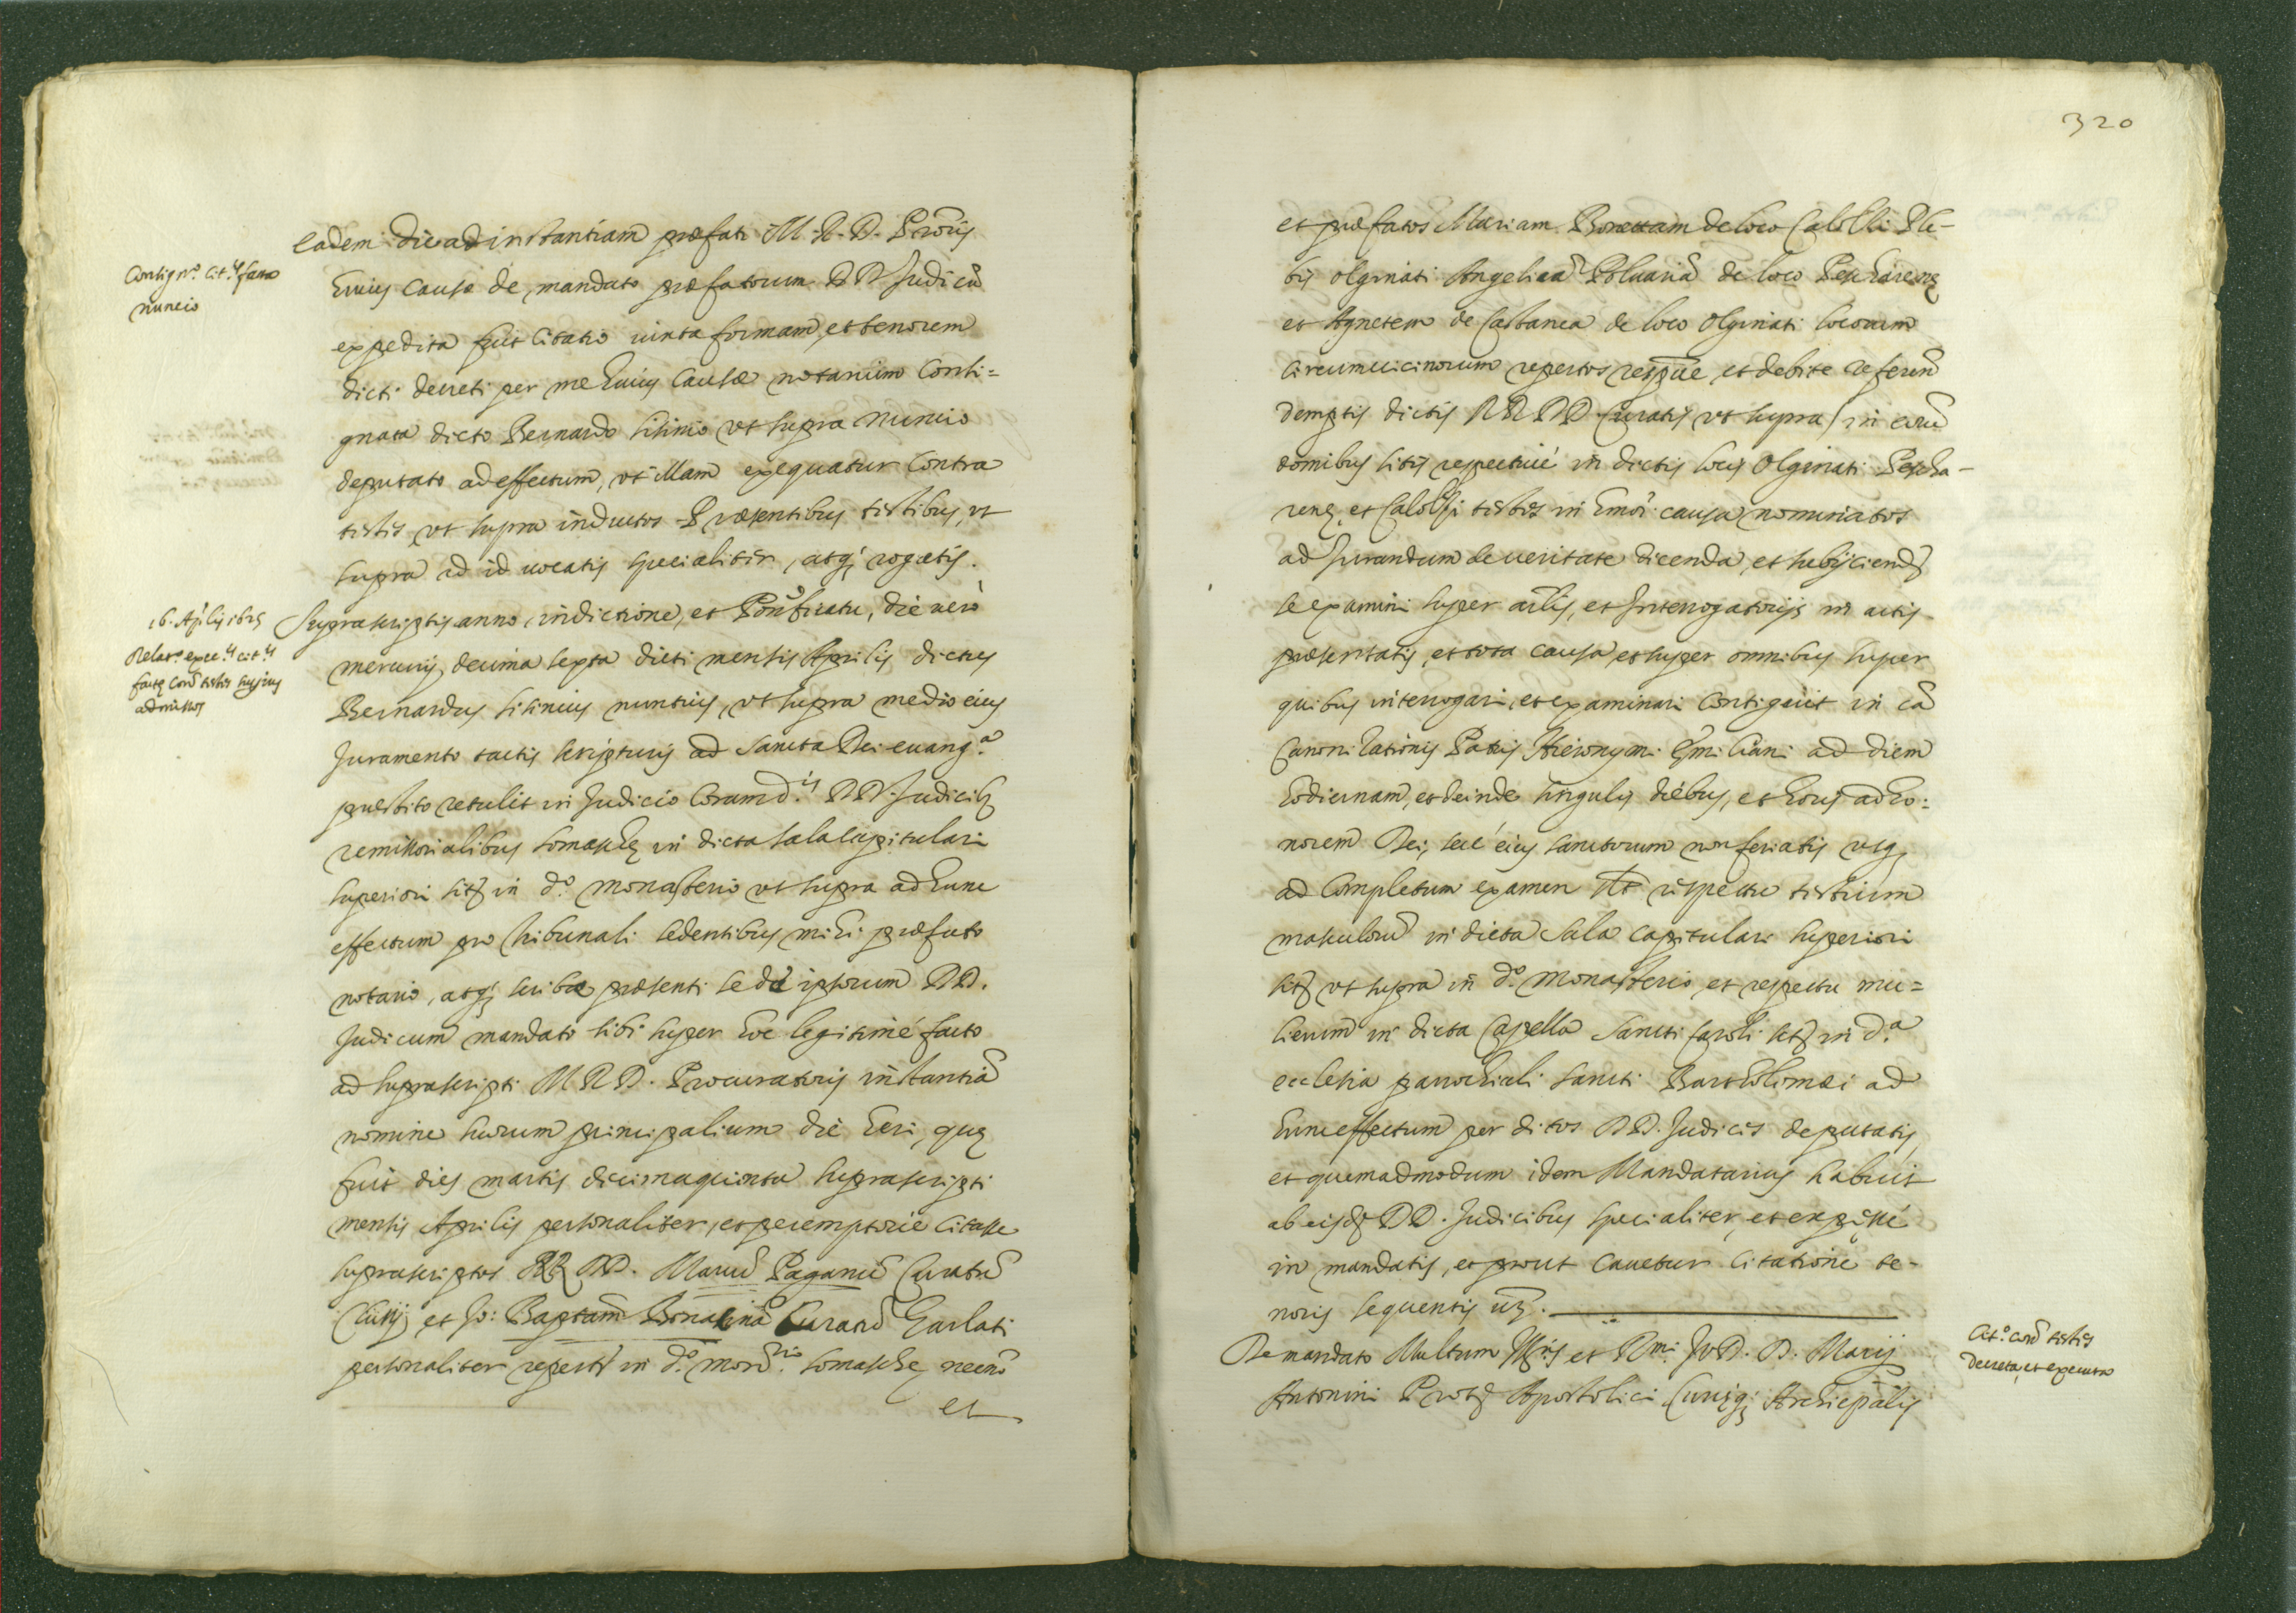 Eadem die ad instantiam præfati M. R. D. Procris
Consig.o Cit.is facta
nuncio
huius causæ de mandato præfatorum DD Judicũ
expedita fuit Citatio iuxta formam, et tenorem
dicti decreti per me huius Causæ notarium Consi=
gnata dicto Bernardo sitinio vt supra nuncio
deputato ad effectum, vt illam exequatur Contra
testes vt supra inductos Præsentibus testibus, vt
supra ad id uocatis specialiter, atq; rogatis.
16. Aplis 1625
Relat.o exec.is cit.is
factę Conť testes
admissos
Suprascriptis anno, indictione, et Pontificatu, die uerò
mercurij decima sexta dicti mensis Aprilis dictus
Bernardus sitinius nuntius, vt supra medio eius
Juramento tactis scripturis ad Sancta Dei euang.a
præstito retulit in Judicio Coram d.is DD. Judicib9
remissorialibus Somaschę in dicta sala capitulari
superiori sitȝ in d.o monasterio vt supra ad hunc
effectum pro tribunali sedentibus mihi præfato
notario, atq; scriba præsenti se de ipsorum DD.
Judicum mandato sibi super hoc legitimè facto
ad suprascripti M R D. Procuratoris instantiã
nomine suorum principalium die heri, quę
fuit dies martis decimaquinta suprascripti
mensis Aprilis personaliter, et peremptorie Citasse
suprascriptos RR DD. Marcũ Paganũ Curatũ
Clusij et Jo: Baptam Bonacinã Curatũ Garlati
personaliter repertȝ in d.o mon.rio Somaschę necnõ
et
320
et præfatos Mariam Bonettam de loco Calolzi Ple-
bis Olginati Angelicã Poluariã de loco Peschareng
et Agnetem de Castanea de loco Olginati locorum
circumuicinorum repertos respue et debite referen̄
demptis dictis RR DD Curatis vt supra) in eorũ
domibus sitis respectiué in dictis locis Olginati Pescha-
renę, et Calolzi testes in hmõi causa nominatos
ad Jurandum de ueritate dicenda, et subijciendȝ
se examini super arlis, et Interrogatorijs in actis
præsentatis, et tota causa, et super omnibus super
quibus interrogari, et examinari Contigerit in cã
Canonizationis Patris Hieronymi Emiliani ad diem
hodiernam, et deinde singulis diebus, et horis ad ho=
norem Dei, seu eius sanctorum non feriatis vsq;
ad Completum examen respectu testium
masculorũ in dicta Sala capitulari superiori
sitȝ vt supra in d.o monasterio, et respectu mu=
lierum in dicta Capella Sancti Caroli sitȝ in d.a
ecclesia parochiali sancti Bartholomæi ad
hunc effectum per dictos DD. Judices deputatis,
et quemadmodum idem Mandatarius habuit
ab eisdȝ DD. Judicibus specialiter, et expręssè
in mandatis, et prout Cauetur Citatione te-
noris sequentis uȝ.
Cit.o Conť testes
decreta, et executa
De mandato Multum Ill.ris et R.mi JVD. D. Marij
Antonini Protȝ Apostolici Curięq; Archiepalis